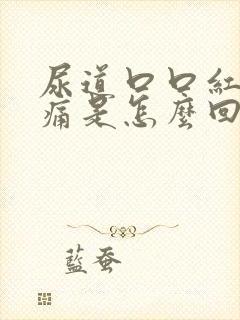 尿道口口紅
痛是怎麼回
藍蚕